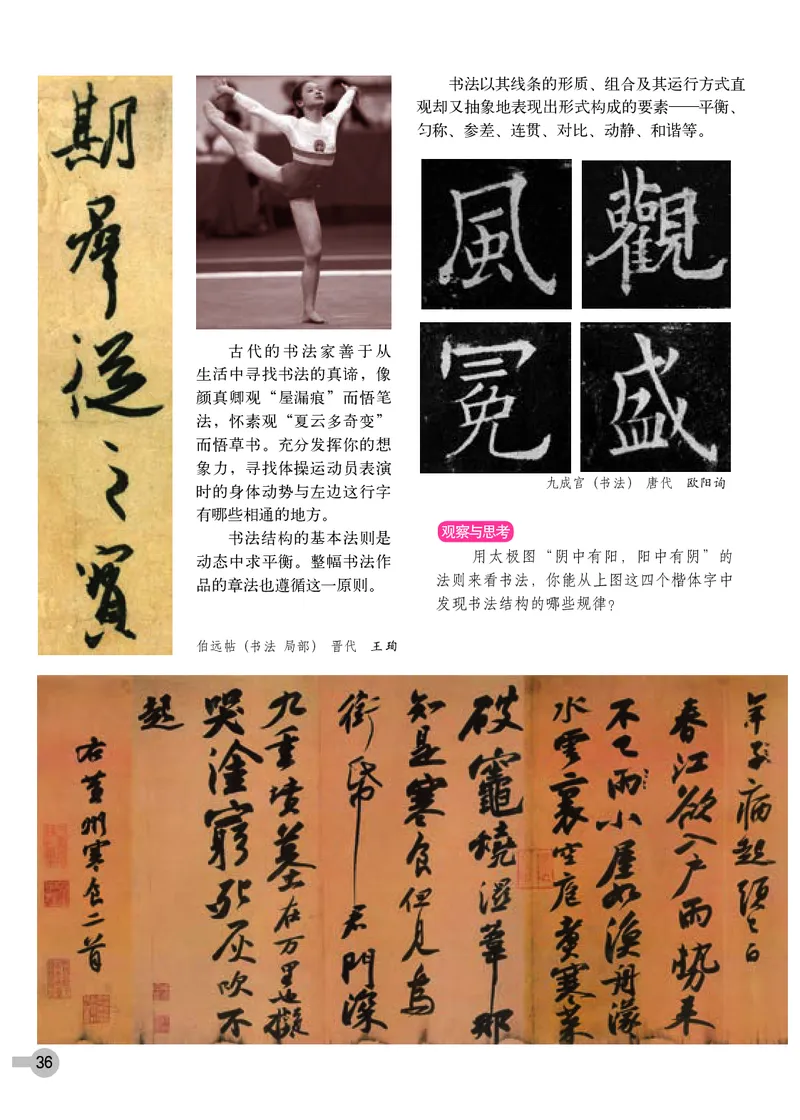 期群從之寶
古代的书法家善于从
生活中寻找书法的真谛，像
颜真卿观“屋漏痕”而悟笔
法，怀素观“夏云多奇变”
而悟草书。充分发挥你的想
象力，寻找体操运动员表演
时的身体动势与左边这行字
有哪些相通的地方。
书法结构的基本法则是
动态中求平衡。整幅书法作
品的章法也遵循这一原则。
伯远帖（书法 局部） 晋代 王珣
书法以其线条的形质、组合及其运行方式直
观却又抽象地表现出形式构成的要素——平衡、
匀称、参差、连贯、对比、动静、和谐等。
風 觀
冕 盛
九成宫（书法） 唐代 欧阳询
观察与思考
用太极图“阴中有阳，阳中有阴”的
法则来看书法，你能从上图这四个楷体字中
发现书法结构的哪些规律？
年子病起須已白
春江欲入户雨勢來
不已雨小屋如漁舟濛
水雲裏空庖煮寒菜
破竈燒濕葦那
知是寒食但見烏
銜帋君門深
九重墳墓在万里也擬
哭塗窮死灰吹不
起
右黄州寒食二首
36